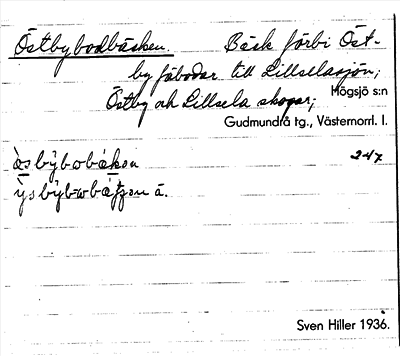 Östbybodbäcken. Bäck förbi Öst-
by fäbodar till Lillselasjön;
Östby och Lillsela skogar; Högsjö s:n
Gudmundrå tg., Västernorrl. l.
247
Sven Hiller 1936.